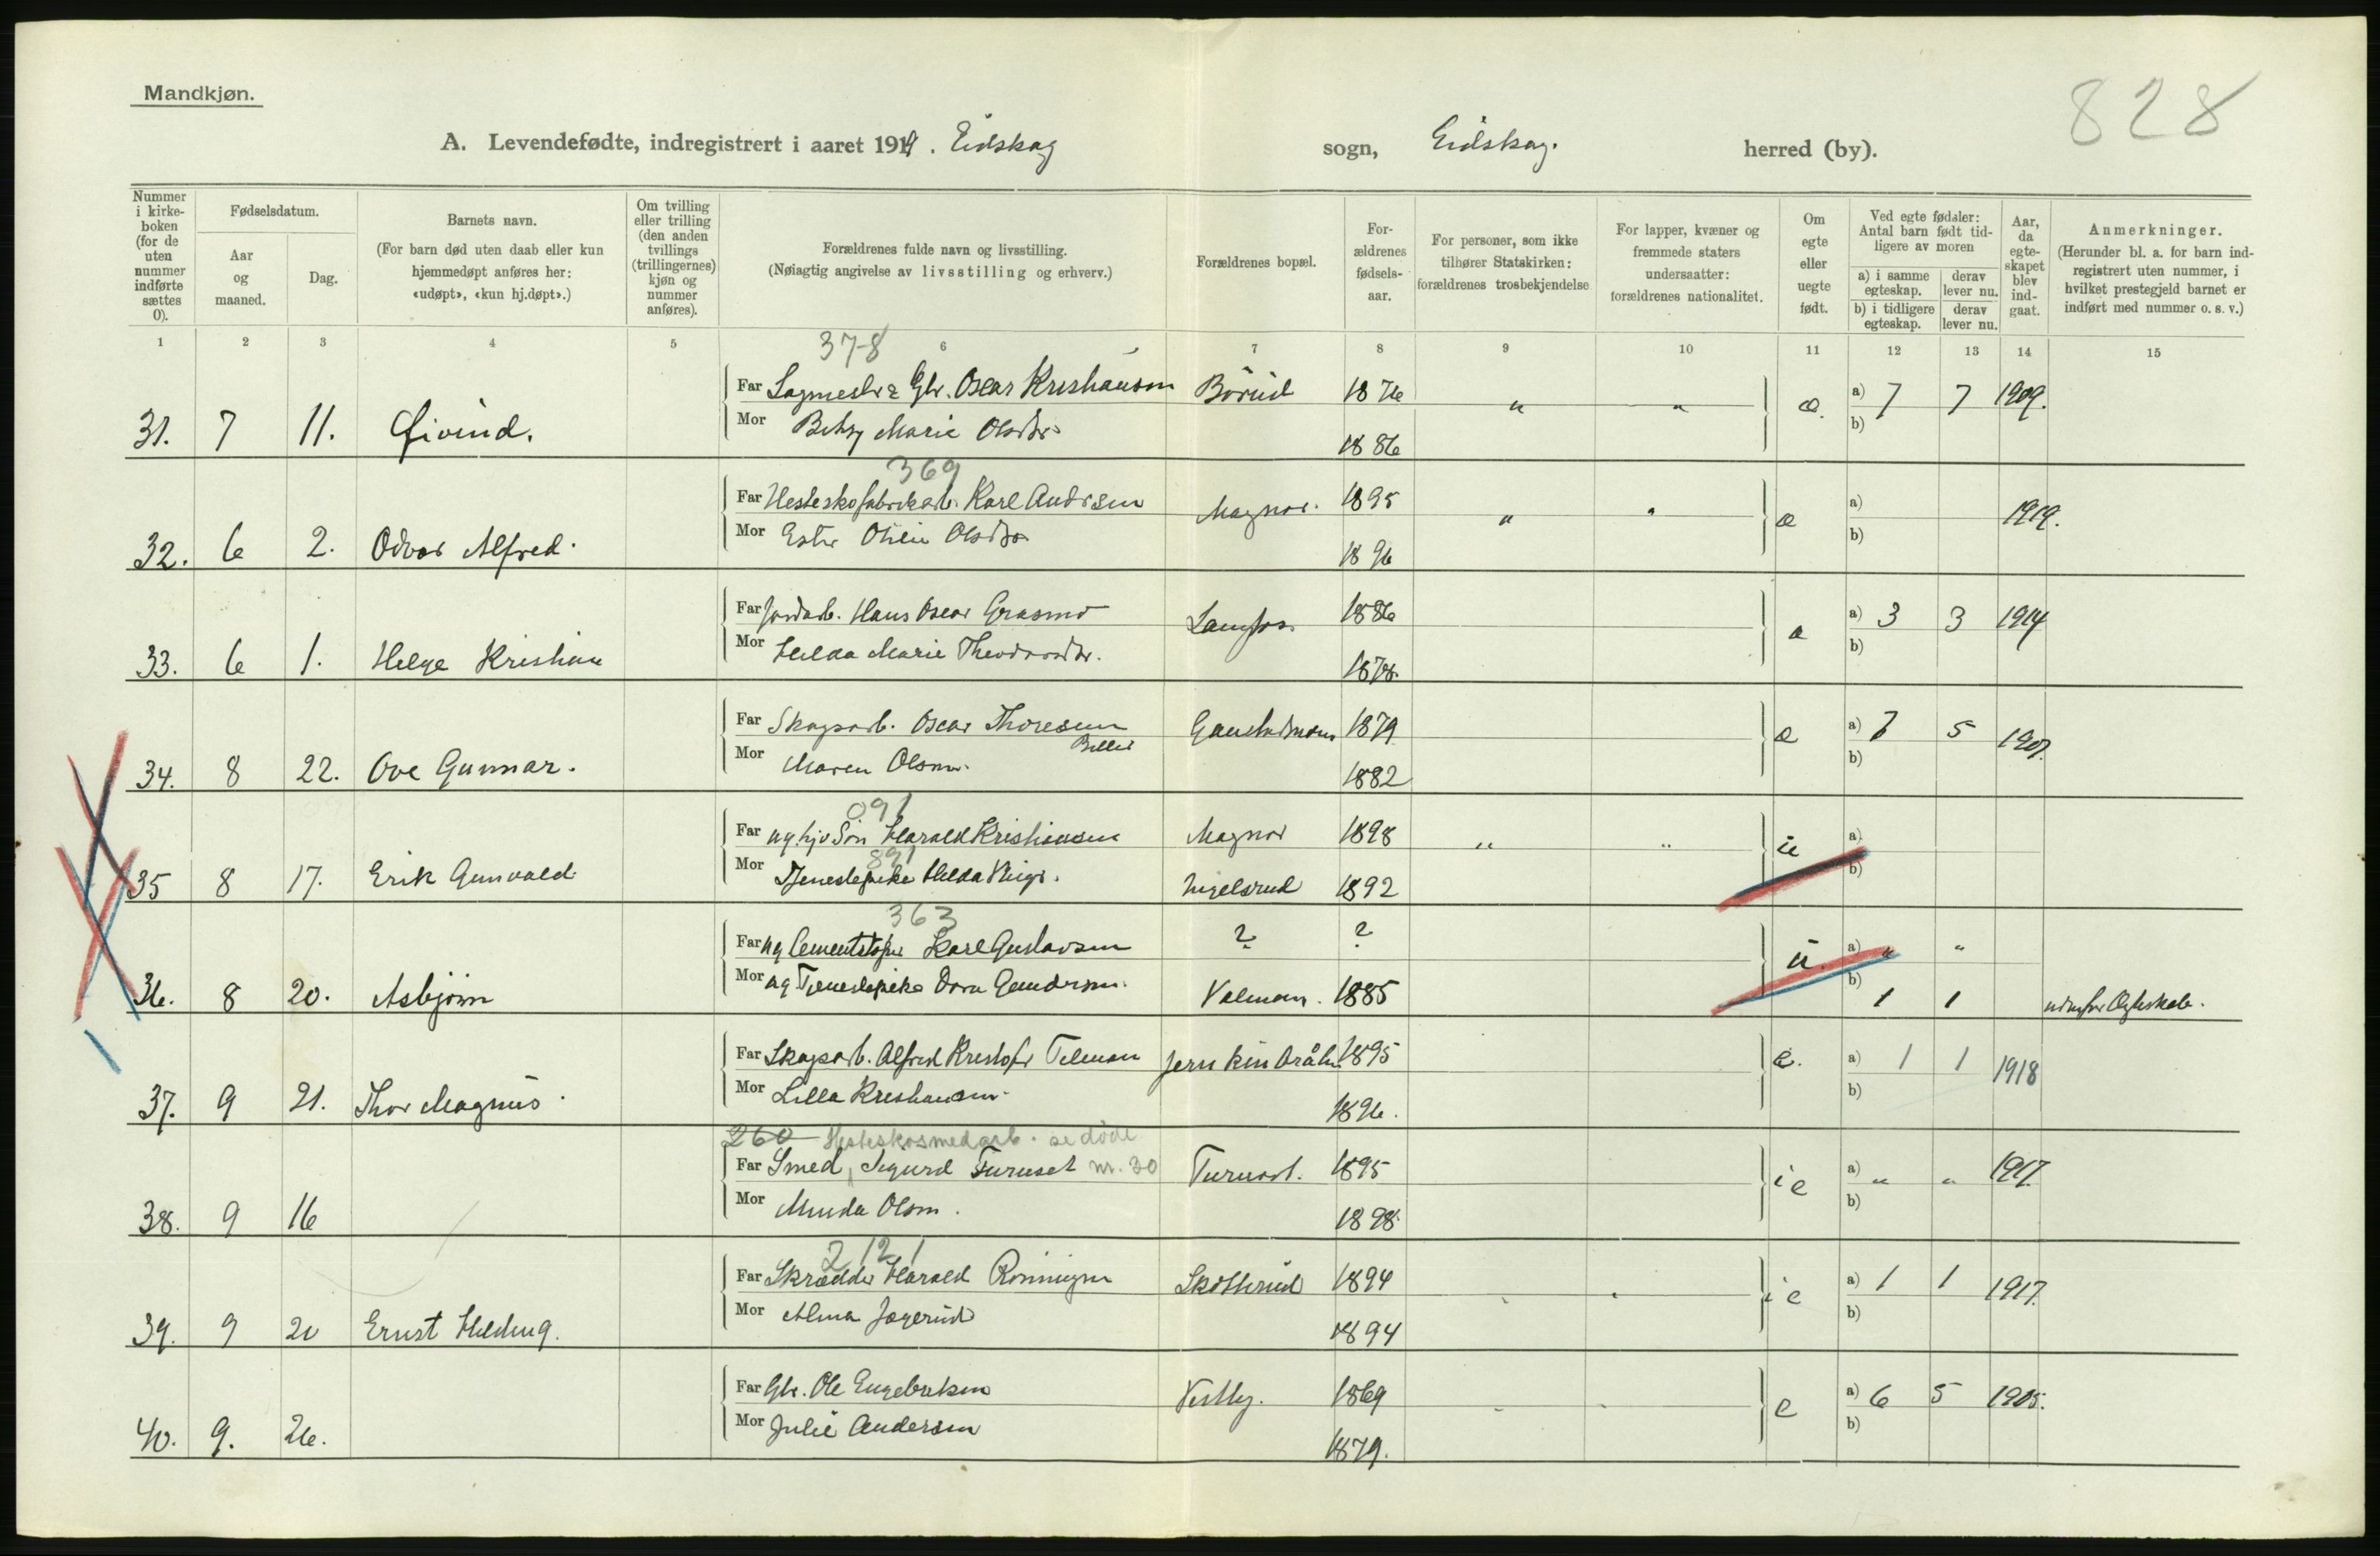 Mandkjøn.
828
A. Levendefødte, indregistrert i aaret 1919. Eidskog sogn, Eidskog. herred (by).
Nummer i kirkeboken (for de uten nummer indførte sættes 0).
Fødselsdatum.
Aar og maaned.
Dag.
Barnets navn.
(For barn død uten daab eller kun hjemmedøpt anføres her: «udøpt», «kun hj.døpt».)
Om tvilling eller trilling (den anden tvillings (trillingernes) kjøn og nummer anføres).
Forældrenes fulde navn og livsstilling.
(Nøiagtig angivelse av livsstilling og erhverv.)
Forældrenes bopæl.
Forældrenes fødselsaar.
For personer, som ikke tilhører Statskirken: forældrenes trosbekjendelse
For lapper, kvæner og fremmede staters undersaatter: forældrenes nationalitet.
Om egte eller uegte født.
Ved egte fødsler: Antal barn født tidligere av moren
a) i samme egteskap. derav lever nu.
b) i tidligere egteskap. derav lever nu.
Aar, da egteskapet blev indgaat.
Anmerkninger.
(Herunder bl. a. for barn indregistrert uten nummer, i hvilket prestegjeld barnet er indført med nummer o. s. v.)
1 2 3 4 5 6 7 8 9 10 11 12 13 14 15
378
Far Sagmester & Gbr. Oscar Kristiansen Børud 1876 " " e. a) 7 7 1909.
31. 7 11. Øivind. Mor Betsy Marie Olsdtr. 1886 b)
369
Far Hesteskofabrikarb. Karl Andersen Magnor. 1895 " " e a) 1919.
32. 6 2. Odvar Alfred. Mor Ester Otilie Olsdtr. 1896 b)
Far Jordarb. Hans Oscar Grasmo 1886 e a) 3 3 1914
33. 6 1. Helge Kristian Mor Hilda Marie 1878. b)
Far Skogsarb. Oscar Thoresen 1879 e a) 7 5 1907.
34. 8 22. Ove Gunnar. Mor Maren Olsen. 1882 b)
091
Far ug. Harald Kristiansen Magnor 1898 " " u a)
891
35 8 17. Erik Gunvald Mor Tjenestepike Hilda Ingelsrud 1892 b)
363
Far ug Cementstøper Karl Gustavsen ? ? u. a) " "
36. 8 20. Asbjørn Mor ug Tjenestepike Dora Gundersen. 1885 b) 1 1 utenfor Egteskab.
Far Skogsarb. Alfred Kristofer 1895 e. a) 1 1 1918
37. 9 21. Thor Magnus. Mor Lilla Kristiansen. 1896. b)
260 Hesteskosmedarb. se døde
Far Smed, Sigurd Furuset nr. 30 1895 e a) " " 1917.
38. 9 16 Mor Minda Olsen. 1898. b)
212 1
Far Skrædder Harald Rønningen Skotterud 1894 " " e a) 1 1 1917.
39. 9 20 Ernst Hilding. Mor Alma Jægerud 1894 b)
Far Gbr. Ole Engebretsen Vestby. 1869 " " e a) 6 5 1905.
40. 9. 26. Mor Julie Andersen 1879. b)